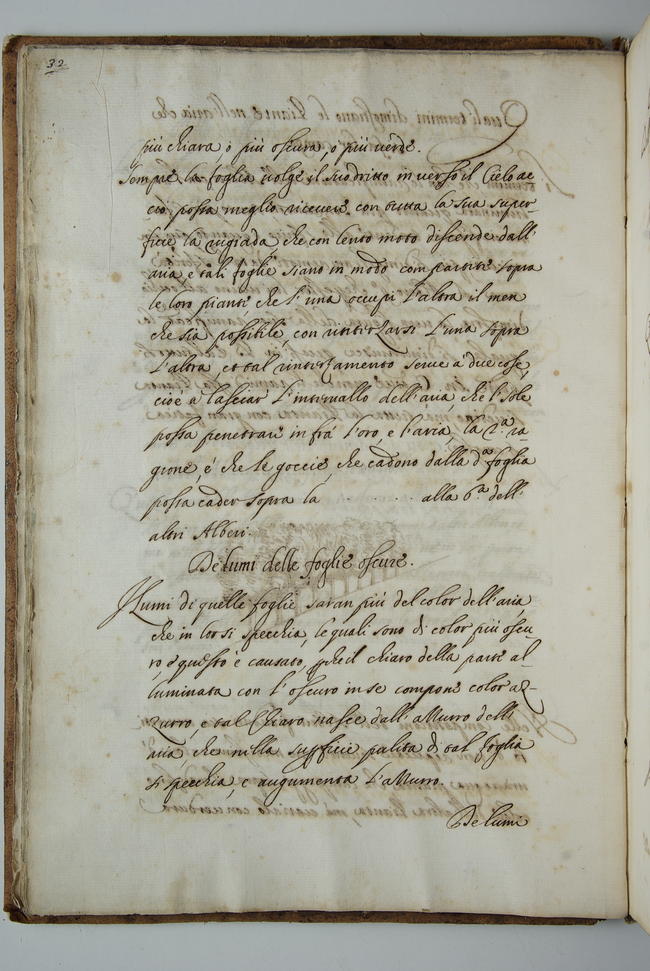 32
più chiara ò più oscura, ò più verde.
Sempre la foglia volge il suo dritto in verso il Cielo ac
ciò possa meglio ricevere con tutta la sua super-
ficie la rugiada, che con lento moto discende dall'
aria, e tali foglie siano in modo compartite sopra
le loro piante, che l'una occupi l'altra il men
che sia possibile, con rinterzarsi l'una sopra
l'altra, et tal rinterzamento serve à due cose,
cioè à lasciar l'intervallo dell'aria, che l'sole
possa penetrare in frà loro, e l'aria, la 2.ª ra-
gione, è che le goccie, che cadono dalla d.ª foglia
possa cader sopra la . . . alla 6.ª dell'
altri Alberi.
De lumi delle foglie oscure.
I Lumi di quelle foglie saran più del color dell'aria,
che in lor si specchia, le quali sono di color più oscu
ro, e questo è causato, che il chiaro della parte al-
luminata con l'oscuro in se compone color az-
zurro, e tal Chiaro nasce dall'azzurro dell'
aria che nella superficie pulita di tal foglia
si specchia, e augumenta l'azzurro.
De lumi